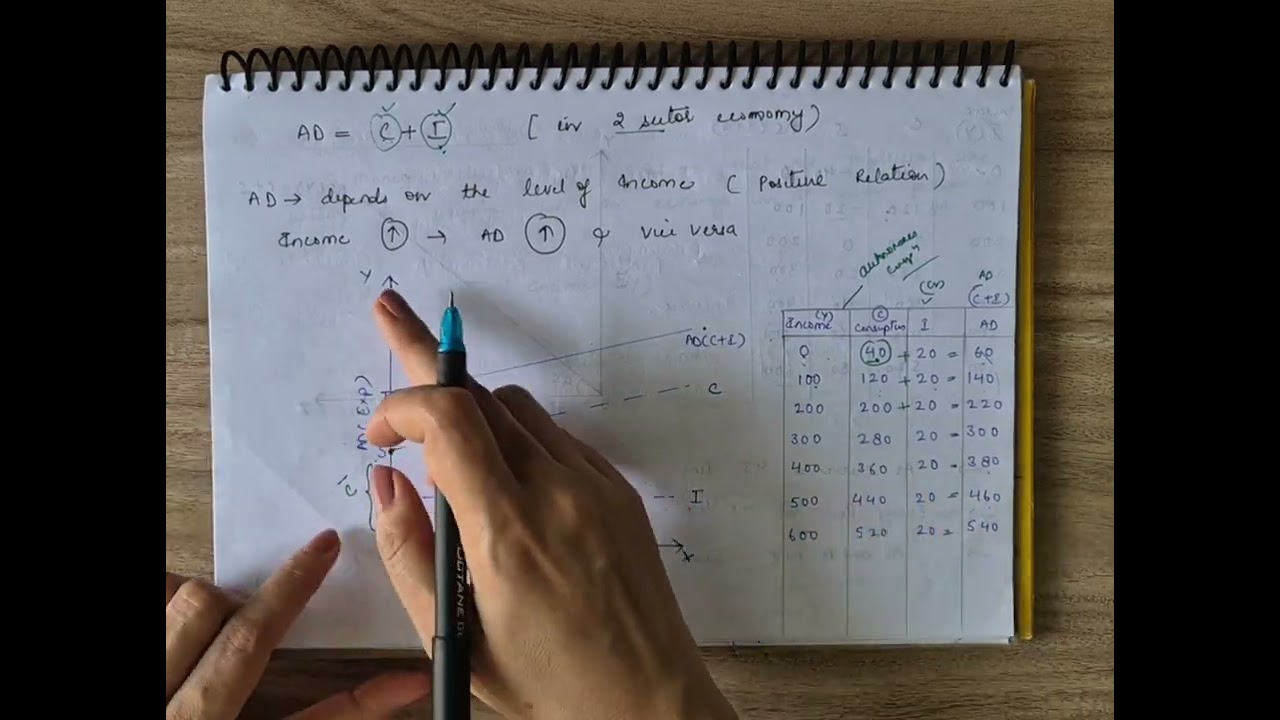 AD = C + I [ in 2 sector economy)
AD → depends on the level of Income ( Positive Relation)
Income ↑ → AD ↑ & vice versa
Y
AD(C+I)
C
AD( Exp)
C̄
I
X
autonomous
Income (Y) | (C) Consuption | I | (C+I) AD
0 | 40 + 20 = 60
100 | 120 + 20 = 140
200 | 200 + 20 = 220
300 | 280 | 20 = 300
400 | 360 | 20 = 380
500 | 440 | 20 = 460
600 | 520 | 20 = 540
OCTANE